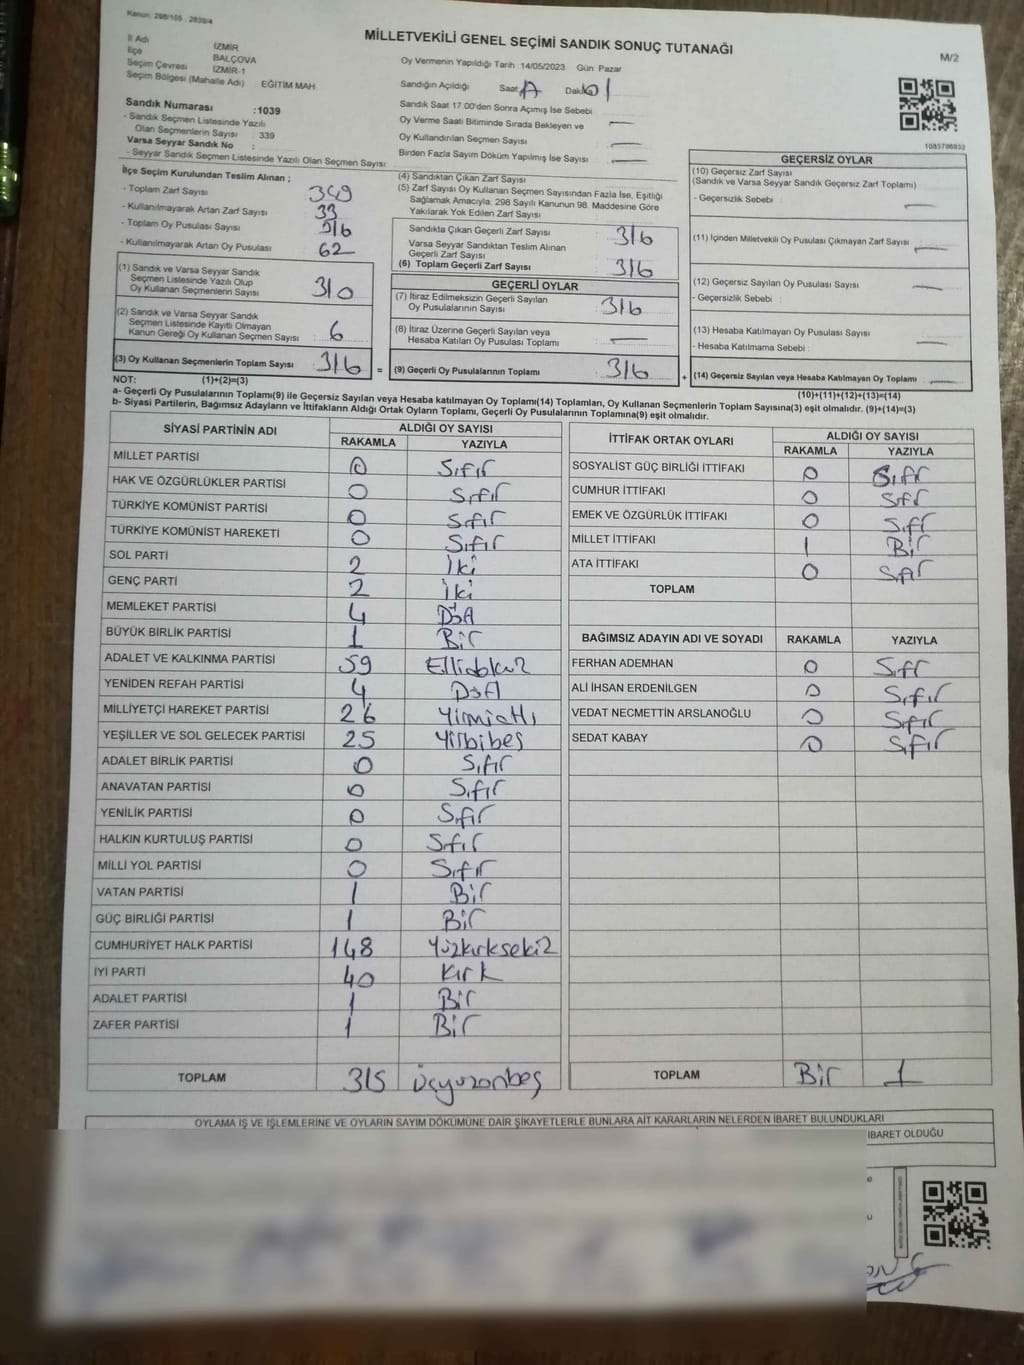 Kanun: 298/105 , 2839/4
MİLLETVEKİLİ GENEL SEÇİMİ SANDIK SONUÇ TUTANAĞI
M/2
İl Adı İZMİR
İlçe BALÇOVA
Seçim Çevresi İZMİR-1
Seçim Bölgesi (Mahalle Adı) EĞİTİM MAH
Sandık Numarası :1039
- Sandık Seçmen Listesinde Yazılı
Olan Seçmenlerin Sayısı : 339
Varsa Seyyar Sandık No :
- Seyyar Sandık Seçmen Listesinde Yazılı Olan Seçmen Sayısı:
Oy Vermenin Yapıldığı Tarih :14/05/2023 Gün Pazar
Sandığın Açıldığı Saat Daki
Sandık Saat 17.00'den Sonra Açımış İse Sebebi
Oy Verme Saati Bitiminde Sırada Bekleyen ve
Oy Kullandırılan Seçmen Sayısı
Birden Fazla Sayım Döküm Yapılmış İse Sayısı
1083796832
İlçe Seçim Kurulundan Teslim Alınan ;
- Toplam Zarf Sayısı 349
- Kullanılmayarak Artan Zarf Sayısı 33
- Toplam Oy Pusulası Sayısı
- Kullanılmayarak Artan Oy Pusulası 62
(1) Sandık ve Varsa Seyyar Sandık
Seçmen Listesinde Yazılı Olup
Oy Kullanan Seçmenlerin Sayısı 310
(2) Sandık ve Varsa Seyyar Sandık
Seçmen Listesinde Kayıtlı Olmayan
Kanun Gereği Oy Kullanan Seçmen Sayısı 6
(3) Oy Kullanan Seçmenlerin Toplam Sayısı 316 =
(4) Sandıktan Çıkan Zarf Sayısı
(5) Zarf Sayısı Oy Kullanan Seçmen Sayısından Fazla İse, Eşitliği
Sağlamak Amacıyla; 298 Sayılı Kanunun 98. Maddesine Göre
Yakılarak Yok Edilen Zarf Sayısı
Sandıkta Çıkan Geçerli Zarf Sayısı : 316
Varsa Seyyar Sandıktan Teslim Alınan
Geçerli Zarf Sayısı
(6) Toplam Geçerli Zarf Sayısı 316
GEÇERLİ OYLAR
(7) İtiraz Edilmeksizin Geçerli Sayılan
Oy Pusulalarının Sayısı 316
(8) İtiraz Üzerine Geçerli Sayılan veya
Hesaba Katılan Oy Pusulası Toplamı
(9) Geçerli Oy Pusulalarının Toplamı : 316 +
GEÇERSİZ OYLAR
(10) Geçersiz Zarf Sayısı
(Sandık ve Varsa Seyyar Sandık Geçersiz Zarf Toplamı)
- Geçersizlik Sebebi :
(11) İçinden Milletvekili Oy Pusulası Çıkmayan Zarf Sayısı
(12) Geçersiz Sayılan Oy Pusulası Sayısı
- Geçersizlik Sebebi :
(13) Hesaba Katılmayan Oy Pusulası Sayısı
- Hesaba Katılmama Sebebi :
(14) Geçersiz Sayılan veya Hesaba Katılmayan Oy Toplamı :
NOT: (1)+(2)=(3) (10)+(11)+(12)+(13)=(14)
a- Geçerli Oy Pusulalarının Toplamı(9) ile Geçersiz Sayılan veya Hesaba Katılmayan Oy Toplamı(14) Toplamları, Oy Kullanan Seçmenlerin Toplam Sayısına(3) eşit olmalıdır. (9)+(14)=(3)
b- Siyasi Partilerin, Bağımsız Adayların ve İttifakların Aldığı Ortak Oyların Toplamı, Geçerli Oy Pusulalarının Toplamına(9) eşit olmalıdır.
SİYASİ PARTİNİN ADI ALDIĞI OY SAYISI
RAKAMLA YAZIYLA
MİLLET PARTİSİ 0 Sıfır
HAK VE ÖZGÜRLÜKLER PARTİSİ 0 Sıfır
TÜRKİYE KOMÜNİST PARTİSİ 0 Sıfır
TÜRKİYE KOMÜNİST HAREKETİ 0 Sıfır
SOL PARTİ 2 İki
GENÇ PARTİ 2 İki
MEMLEKET PARTİSİ 4 Dört
BÜYÜK BİRLİK PARTİSİ 1 Bir
ADALET VE KALKINMA PARTİSİ 59 Ellidokuz
YENİDEN REFAH PARTİSİ 4 Dört
MİLLİYETÇİ HAREKET PARTİSİ 26 Yirmialtı
YEŞİLLER VE SOL GELECEK PARTİSİ 25
ADALET BİRLİK PARTİSİ 0 Sıfır
ANAVATAN PARTİSİ 0 Sıfır
YENİLİK PARTİSİ 0 Sıfır
HALKIN KURTULUŞ PARTİSİ 0 Sıfır
MİLLİ YOL PARTİSİ 0 Sıfır
VATAN PARTİSİ 1 Bir
GÜÇ BİRLİĞİ PARTİSİ 1 Bir
CUMHURİYET HALK PARTİSİ 148 Yüzkırksekiz
İYİ PARTİ 40 Kırk
ADALET PARTİSİ 1 Bir
ZAFER PARTİSİ 1 Bir
TOPLAM 315 Üçyüzonbeş
İTTİFAK ORTAK OYLARI ALDIĞI OY SAYISI
RAKAMLA YAZIYLA
SOSYALİST GÜÇ BİRLİĞİ İTTİFAKI 0 Sıfır
CUMHUR İTTİFAKI 0 Sıfır
EMEK VE ÖZGÜRLÜK İTTİFAKI 0 Sıfır
MİLLET İTTİFAKI 1 Bir
ATA İTTİFAKI 0 Sıfır
TOPLAM
BAĞIMSIZ ADAYIN ADI VE SOYADI RAKAMLA YAZIYLA
FERHAN ADEMHAN 0 Sıfır
ALİ İHSAN ERDENİLGEN 0 Sıfır
VEDAT NECMETTİN ARSLANOĞLU 0 Sıfır
SEDAT KABAY 0 Sıfır
TOPLAM Bir 1
OYLAMA İŞ VE İŞLEMLERİNE VE OYLARIN SAYIM DÖKÜMÜNE DAİR ŞİKAYETLERLE BUNLARA AİT KARARLARIN NELERDEN İBARET BULUNDUKLARI
İBARET OLDUĞU